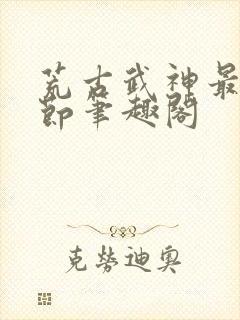 荒古武神最
节笔趣阁
克劳迪奥